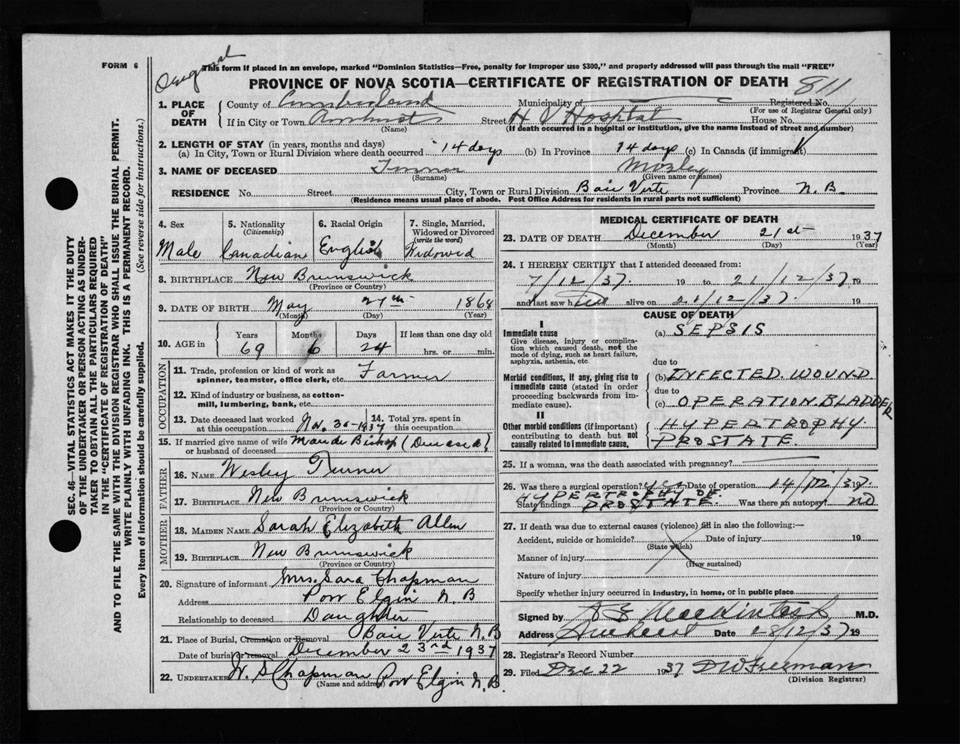 FORM 6 Original This form if placed in an envelope, marked "Dominion Statistics—Free, penalty for improper use $300," and properly addressed will pass through the mail "FREE"
PROVINCE OF NOVA SCOTIA—CERTIFICATE OF REGISTRATION OF DEATH 811
1. PLACE OF DEATH County of Cumberland Municipality of Registered No.
(For use of Registrar General only)
If in City or Town Amherst Street H V Hospital House No.
(Name) (If death occurred in a hospital or institution, give the name instead of street and number)
2. LENGTH OF STAY (in years, months and days)
(a) In City, Town or Rural Division where death occurred 14 days (b) In Province 14 days (c) In Canada (if immigrant)
3. NAME OF DECEASED Turner Mosley
(Surname) (Given name or names)
RESIDENCE No. Street City, Town or Rural Division Baie Verte Province N.B.
(Residence means usual place of abode. Post Office Address for residents in rural parts not sufficient)
4. Sex Male
5. Nationality (Citizenship) Canadian
6. Racial Origin English
7. Single, Married, Widowed or Divorced (write the word) Widowed
8. BIRTHPLACE New Brunswick
(Province or Country)
9. DATE OF BIRTH May 27th 1868
(Month) (Day) (Year)
10. AGE in Years 69 Months 6 Days 24 If less than one day old hrs. or min.
OCCUPATION
11. Trade, profession or kind of work as spinner, teamster, office clerk, etc. Farmer
12. Kind of industry or business, as cotton-mill, lumbering, bank, etc.
13. Date deceased last worked at this occupation Nov. 30-1937
14. Total yrs. spent in this occupation
15. If married give name of wife or husband of deceased Maude Bishop (Deceased)
FATHER
16. NAME Wesley Turner
17. BIRTHPLACE New Brunswick
(Province or Country)
MOTHER
18. MAIDEN NAME Sarah Elizabeth Allen
19. BIRTHPLACE New Brunswick
(Province or Country)
20. Signature of informant Mrs. Sara Chapman
Address Port Elgin N.B
Relationship to deceased Daughter
21. Place of Burial, Cremation or Removal Baie Verte N.B
Date of burial or removal December 23rd 1937
22. UNDERTAKER W. S Chapman Port Elgin N.B.
(Name and address)
MEDICAL CERTIFICATE OF DEATH
23. DATE OF DEATH December 21st 1937
(Month) (Day) (Year)
24. I HEREBY CERTIFY that I attended deceased from:
7/12/37. 19 to 21/12/37 19
and last saw him alive on 21/12/37. 19
CAUSE OF DEATH
I
Immediate cause (a) SEPSIS
Give disease, injury or complication which caused death, not the mode of dying, such as heart failure, asphyxia, asthenia, etc.
due to
Morbid conditions, if any, giving rise to immediate cause (stated in order proceeding backwards from immediate cause). (b) INFECTED. WOUND
due to
(c) OPERATION. BLADDER
II
Other morbid conditions (if important) contributing to death but not causally related to immediate cause. HYPERTROPHY. PROSTATE.
25. If a woman, was the death associated with pregnancy?
26. Was there a surgical operation? yes Date of operation 14/12/37.
State findings HYPERTROPHY OF PROSTATE. Was there an autopsy? NO
27. If death was due to external causes (violence) fill in also the following:—
Accident, suicide or homicide? Date of injury 19
(State which)
Manner of injury
(How sustained)
Nature of injury
Specify whether injury occurred in industry, in home, or in public place
Signed by M.D.
Address Amherst Date 28/12/37 19
28. Registrar's Record Number
29. Filed Dec 22 1937 DW Freeman
(Division Registrar)
SEC. 46—VITAL STATISTICS ACT MAKES IT THE DUTY
OF THE UNDERTAKER OR PERSON ACTING AS UNDER-
TAKER TO OBTAIN ALL THE PARTICULARS REQUIRED
IN THE "CERTIFICATE OF REGISTRATION OF DEATH"
AND TO FILE THE SAME WITH THE DIVISION REGISTRAR WHO SHALL ISSUE THE BURIAL PERMIT.
WRITE PLAINLY WITH UNFADING INK. THIS IS A PERMANENT RECORD.
Every item of information should be carefully supplied. (See reverse side for instructions.)